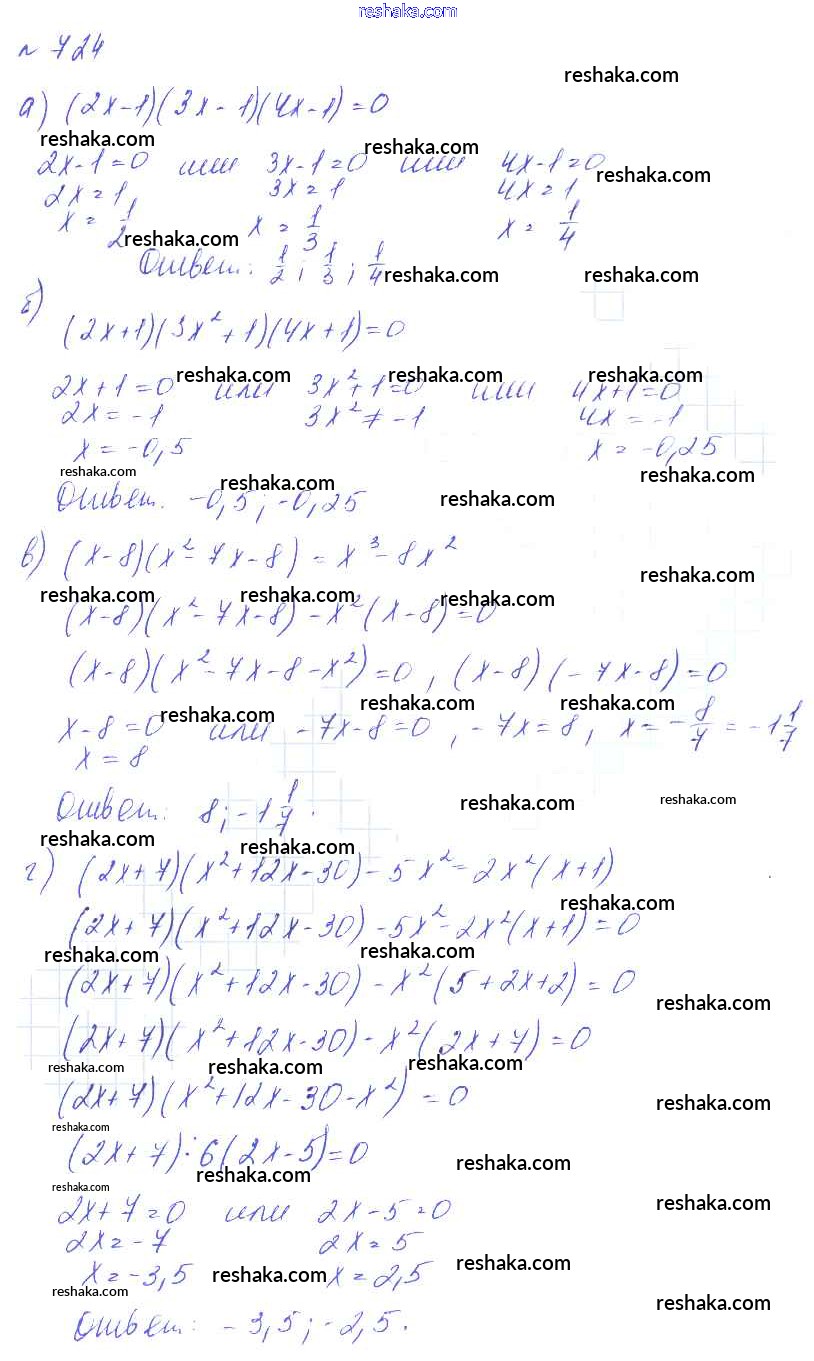 reshaka.com
№ 724
reshaka.com
а) (2x-1)(3x-1)(4x-1)=0
reshaka.com reshaka.com
2x-1=0 или 3x-1=0 или 4x-1=0
reshaka.com
2x=1 3x=1 4x=1
x=1/2 x=1/3 x=1/4
reshaka.com
Ответ: 1/2; 1/3; 1/4 reshaka.com reshaka.com
б)
(2x+1)(3x²+1)(4x+1)=0
reshaka.com reshaka.com reshaka.com
2x+1=0 или 3x²+1=0 или 4x+1=0
2x=-1 3x²≠-1 4x=-1
x=-0,5 x=-0,25
reshaka.com reshaka.com reshaka.com
Ответ. -0,5; -0,25 reshaka.com
в) (x-8)(x²-7x-8)=x³-8x²
reshaka.com
reshaka.com reshaka.com reshaka.com
(x-8)(x²-7x-8)-x²(x-8)=0
(x-8)(x²-7x-8-x²)=0, (x-8)(-7x-8)=0
reshaka.com reshaka.com reshaka.com
x-8=0 или -7x-8=0, -7x=8, x=-8/7=-1 1/7
x=8
reshaka.com reshaka.com
Ответ: 8; -1 1/7.
reshaka.com reshaka.com
г) (2x+7)(x²+12x-30)-5x²=2x²(x+1)
reshaka.com
(2x+7)(x²+12x-30)-5x²-2x²(x+1)=0
reshaka.com reshaka.com
(2x+7)(x²+12x-30)-x²(5+2x+2)=0
reshaka.com
(2x+7)(x²+12x-30)-x²(2x+7)=0
reshaka.com reshaka.com reshaka.com
(2x+7)(x²+12x-30-x²)=0
reshaka.com
reshaka.com
(2x+7)·6(2x-5)=0
reshaka.com reshaka.com
reshaka.com
2x+7=0 или 2x-5=0
reshaka.com
2x=-7 2x=5
x=-3,5 x=2,5
reshaka.com reshaka.com
reshaka.com reshaka.com
Ответ: -3,5; -2,5.